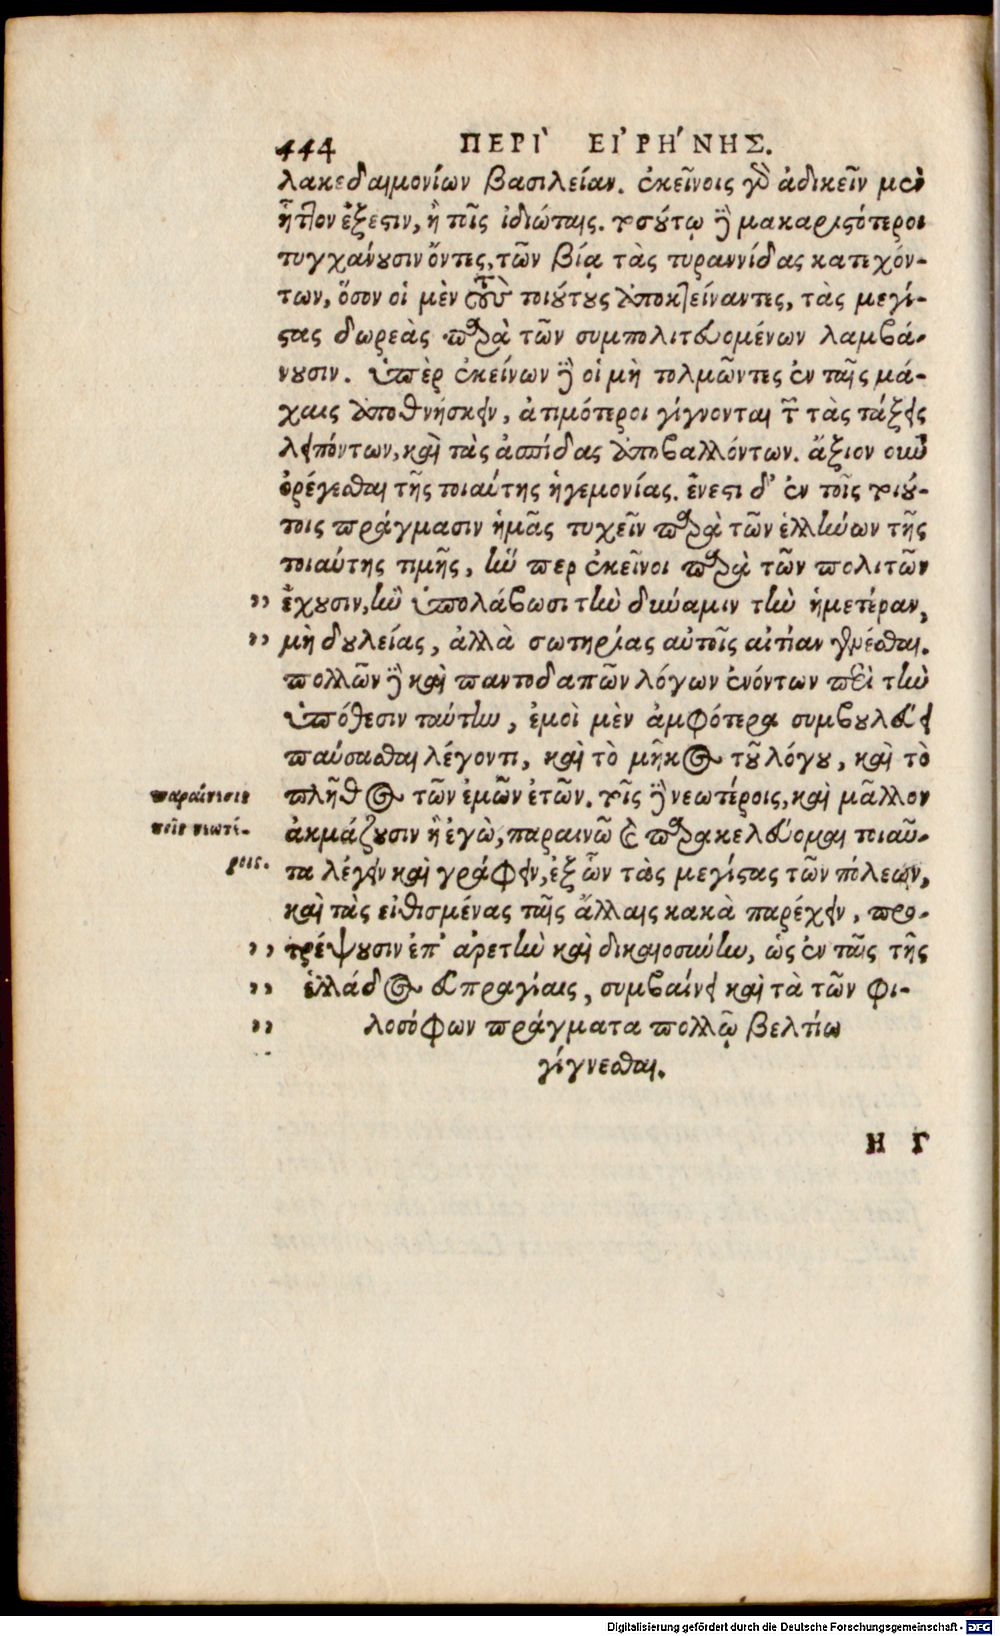 444 ΠΕΡΙ` ΕΙ᾿ΡΗ´ΝΗΣ.
λακεδαιμονίων βασιλείαν. ἐκείνοις γὸ ἀδικεῖν μὲν
ἧττον ἔξεστιν, ἢ τοῖς ἰδιώταις. τοσούτῳ δὲ μακαριστότεροι
τυγχάνουσιν ὄντες, τῶν βίᾳ τὰς τυραννίδας κατεχόν-
των, ὅσον οἱ μὲν τοὺς τοιούτους ἀποκτείναντες, τὰς μεγί-
στας δωρεὰς παρὰ τῶν συμπολιτευομένων λαμβά-
νουσιν. ὑπὲρ ἐκείνων δὲ οἱ μὴ τολμῶντες ἐν ταῖς μά-
χαις ἀποθνήσκειν, ἀτιμότεροι γίγνονται τῶν τὰς τάξεις
λειπόντων, καὶ τὰς ἀσπίδας ἀποβαλλόντων. ἄξιον οὖν
ὀρέγεσθαι τῆς τοιαύτης ἡγεμονίας. ἔνεστι δ᾽ ἐν τοῖς τιού-
τοις πράγμασιν ἡμᾶς τυχεῖν παρὰ τῶν ἑλλήνων τῆς
τοιαύτης τιμῆς, ἥν περ ἐκεῖνοι παρὰ τῶν πολιτῶν
” ἔχουσιν, ἢν ὑπολάβωσι τὴν δύναμιν τὴν ἡμετέραν,
” μὴ δουλείας, ἀλλὰ σωτηρίας αὐτοῖς αἰτίαν γενέσθαι.
πολλῶν δὲ καὶ παντοδαπῶν λόγων ἐνόντων περὶ τὴν
ὑπόθεσιν ταύτην, ἐμοὶ μὲν ἀμφότερα συμβουλεύει
παύσασθαι λέγοντι, καὶ τὸ μῆκος τοῦ λόγου, καὶ τὸ
πλῆθος τῶν ἐμῶν ἐτῶν. τοῖς δὲ νεωτέροις, καὶ μᾶλλον
ἀκμάζουσιν ἢ ἐγὼ, παραινῶ καὶ παρακελεύομαι τοιαῦ-
τα λέγειν καὶ γράφειν, ἐξ ὧν τὰς μεγίστας τῶν πόλεων,
καὶ τὰς εἰθισμένας ταῖς ἄλλαις κακὰ παρέχειν, προ-
” τρέψουσιν ἐπ᾽ ἀρετὴν καὶ δικαιοσύνην, ὡς ἐν ταῖς τῆς
” ἑλλάδος εὐπραγίαις, συμβαίνει καὶ τὰ τῶν φι-
” λοσόφων πράγματα πολλῷ βελτίω
γίγνεσθαι.
παραίνεσις
τοῖς νεωτέ-
ροις.
Η Γ
Digitalisierung gefördert durch die Deutsche Forschungsgemeinschaft - DFG